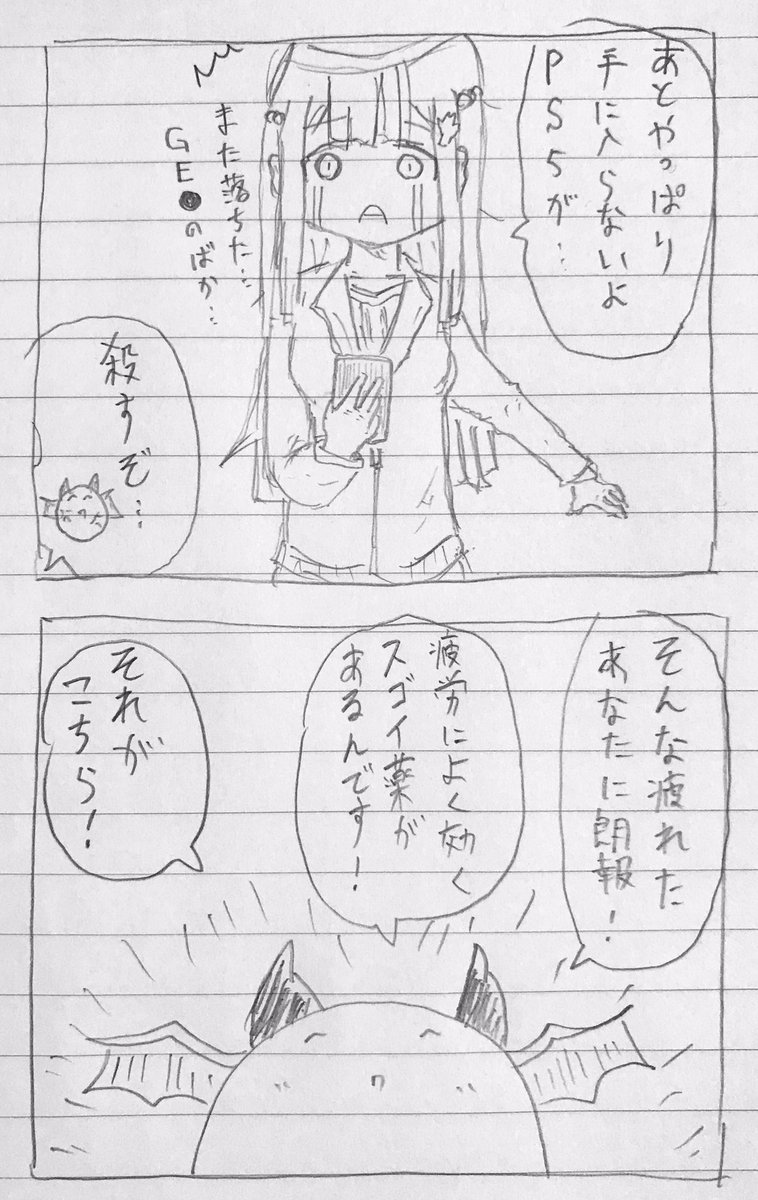 あとやっぱり
手に入らないよ
PS5が…
また落ちた…
GE●のばか…
殺すぞ…
そんな疲れた
あなたに朗報!
疲労によく効く
スゴイ薬が
あるんです!
それが
こちら!